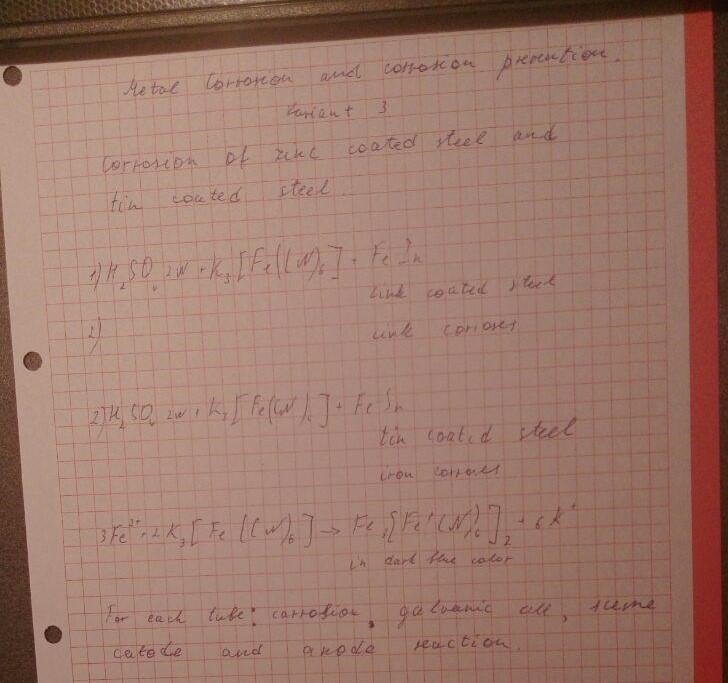 Metal Corrosion and corrosion prevention.
Variant 3
Corrosion of zinc coated steel and
tin coated steel.
1) H₂SO₄ 2N + K₃[Fe(CN)₆] + Fe Zn
zink coated steel
2)
zink corroses
2) H₂SO₄ 2N + K₃[Fe(CN)₆] + Fe Sn
tin coated steel
iron corroses
3Fe²⁺ + 2K₃[Fe(CN)₆] → Fe₃[Fe(CN)₆]₂ + 6K⁺
in dark blue color
For each tube: corrosion, galvanic cell, sceme
catode and anode reaction.